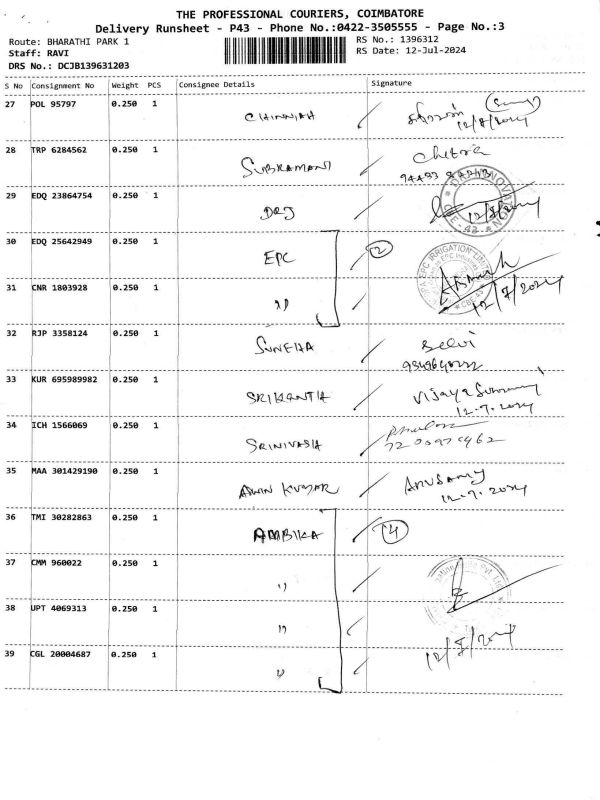 THE PROFESSIONAL COURIERS, COIMBATORE
Delivery Runsheet - P43 - Phone No.:0422-3505555 - Page No.:3
Route: BHARATHI PARK 1
RS No.: 1396312
Staff: RAVI
RS Date: 12-Jul-2024
DRS No.: DCJB139631203
S No Consignment No Weight PCS Consignee Details Signature
27 POL 95797 0.250 1 CHINNIAH
28 TRP 6284562 0.250 1 SUBRAMANI Chitra
29 EDQ 23864754 0.250 1 DRJ
30 EDQ 25642949 0.250 1 EPC 2
31 CNR 1803928 0.250 1 "
12/7/2024
32 RJP 3358124 0.250 1 SUNEHA Selvi
33 KUR 695989982 0.250 1 SRIKANTH
12.7.2024
34 ICH 1566069 0.250 1
35 MAA 301429190 0.250 1 ASWIN KUMAR
12.7.2024
36 TMI 30282863 0.250 1 AMBIKA 4
37 CMM 960022 0.250 1 "
38 UPT 4069313 0.250 1 "
39 CGL 20004687 0.250 1 "